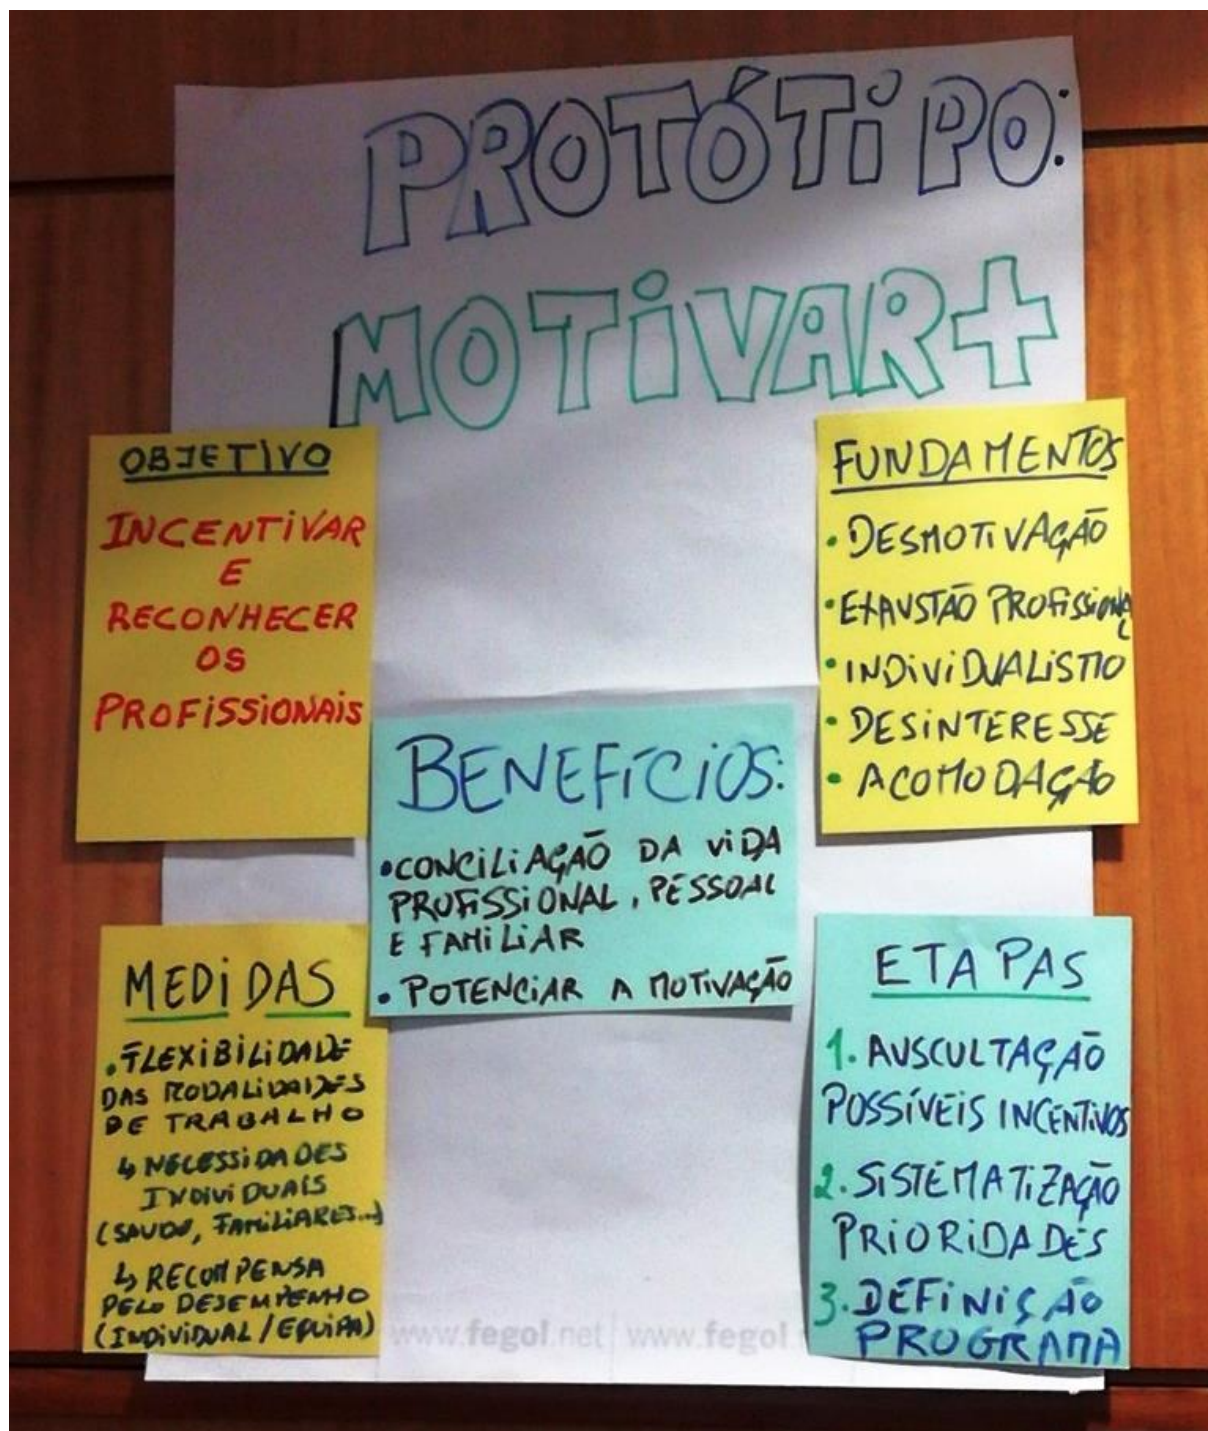 PROTÓTIPO:
MOTIVAR+
OBJETIVO
INCENTIVAR
E
RECONHECER
OS
PROFISSIONAIS
FUNDAMENTOS
• DESMOTIVAÇÃO
• EXAUSTÃO PROFISSIONAL
• INDIVIDUALISMO
• DESINTERESSE
• ACOMODAÇÃO
BENEFÍCIOS:
• CONCILIAÇÃO DA VIDA
PROFISSIONAL, PESSOAL
E FAMILIAR
• POTENCIAR A MOTIVAÇÃO
MEDIDAS
• FLEXIBILIDADE
DAS MODALIDADES
DE TRABALHO
↳ NECESSIDADES
INDIVIDUAIS
(SAUDE, FAMILIARES...)
↳ RECOMPENSA
PELO DESEMPENHO
(INDIVIDUAL / EQUIPA)
ETAPAS
1. AUSCULTAÇÃO
POSSÍVEIS INCENTIVOS
2. SISTEMATIZAÇÃO
PRIORIDADES
3. DEFINIÇÃO
PROGRAMA
www.fegol.net | www.fegol.